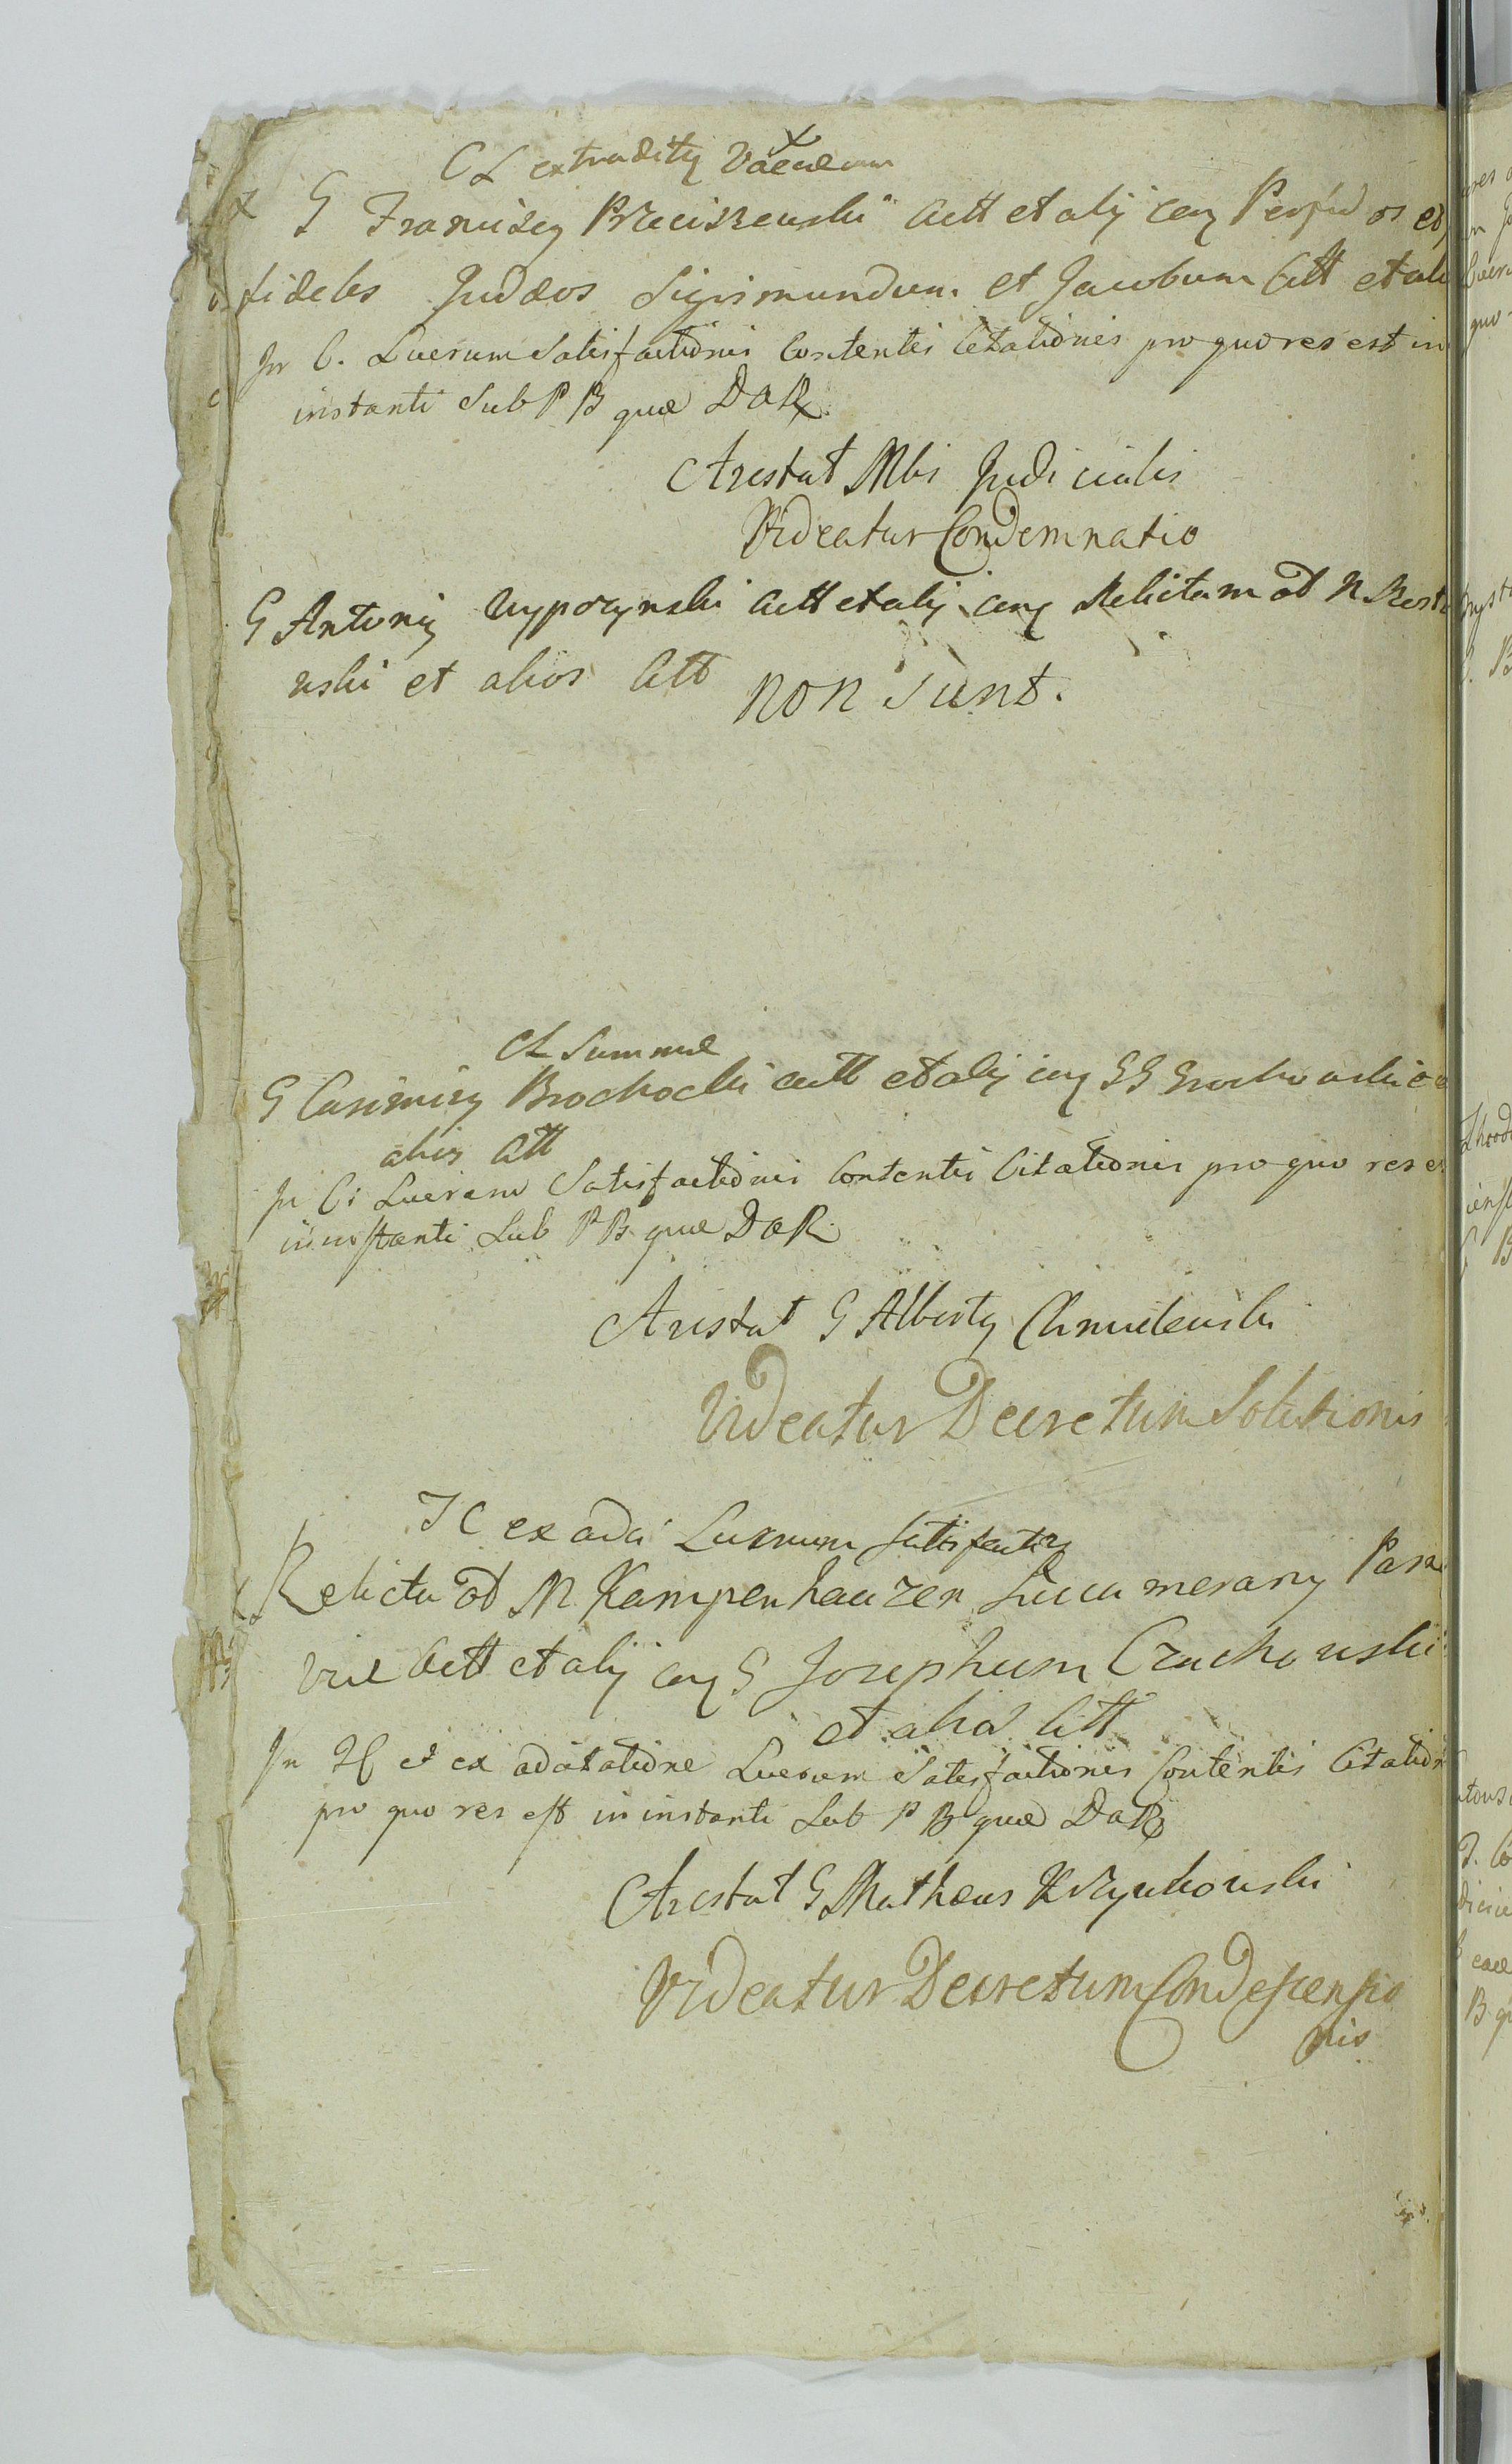 CL extraditıę Vaccarum
x G Franciscꝫ Przeciszewski Actt et alij cnꝫ Perfidos et
fideles Judæos Sigismundum et Jacobum Citt et ali
In C. Lucrum Satisfactionis Contentis Citationis pro quo res est in
instanti Sub P B quæ DaR
Arestat Mbi Judicialis
Videatur Condemnatio
G Antoniꝫ Wypczynski Actt et alij cnꝫ Relictam od N
uski et alios Citt non sunt.
CL Summæ
G Casimirꝫ Brochocki Actt et alij cnꝫ GG Grochowskie
alios Citt
In C: Lucrum Satisfactionis Contentis Citationis pro quo res e
in instanti Sub P B quæ DaR
Arestat G Albertꝫ Chmielewski
Videatur Decretum Solutionis
IC ex adci Lucrum Satisfactis
Relicta od M Kampenhauzen Succamerarij Parn
viæ Actt et alij cnꝫ G Josephum Czachowski
et alios Citt
In IC et ex adcitatione Lucrum Satisfactionis Contentis Citation
pro quo res est in instanti Sub P B quæ DaR
Arestat G Matheus Krzyckowski
Videatur Decretum Condescensio
nis